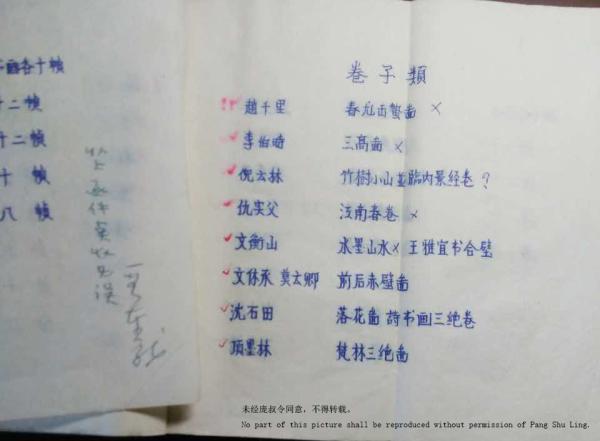 画各十帧
十二帧
十二帧
十 帧
八 帧
卷子類
趙千里 春龙出蛰啚 ×
李伯時 三高啚 ×
倪云林 竹樹小山並臨内景经卷?
仇实父 江南春卷 ×
文衡山 水墨山水× 王雅宜书合璧
文休承 莫云卿 前后赤壁啚
沈石田 落花啚 詩书画三绝卷
项墨林 梵林三绝啚
未经庞叔令同意，不得转载。
No part of this picture shall be reproduced without permission of Pang Shu Ling.